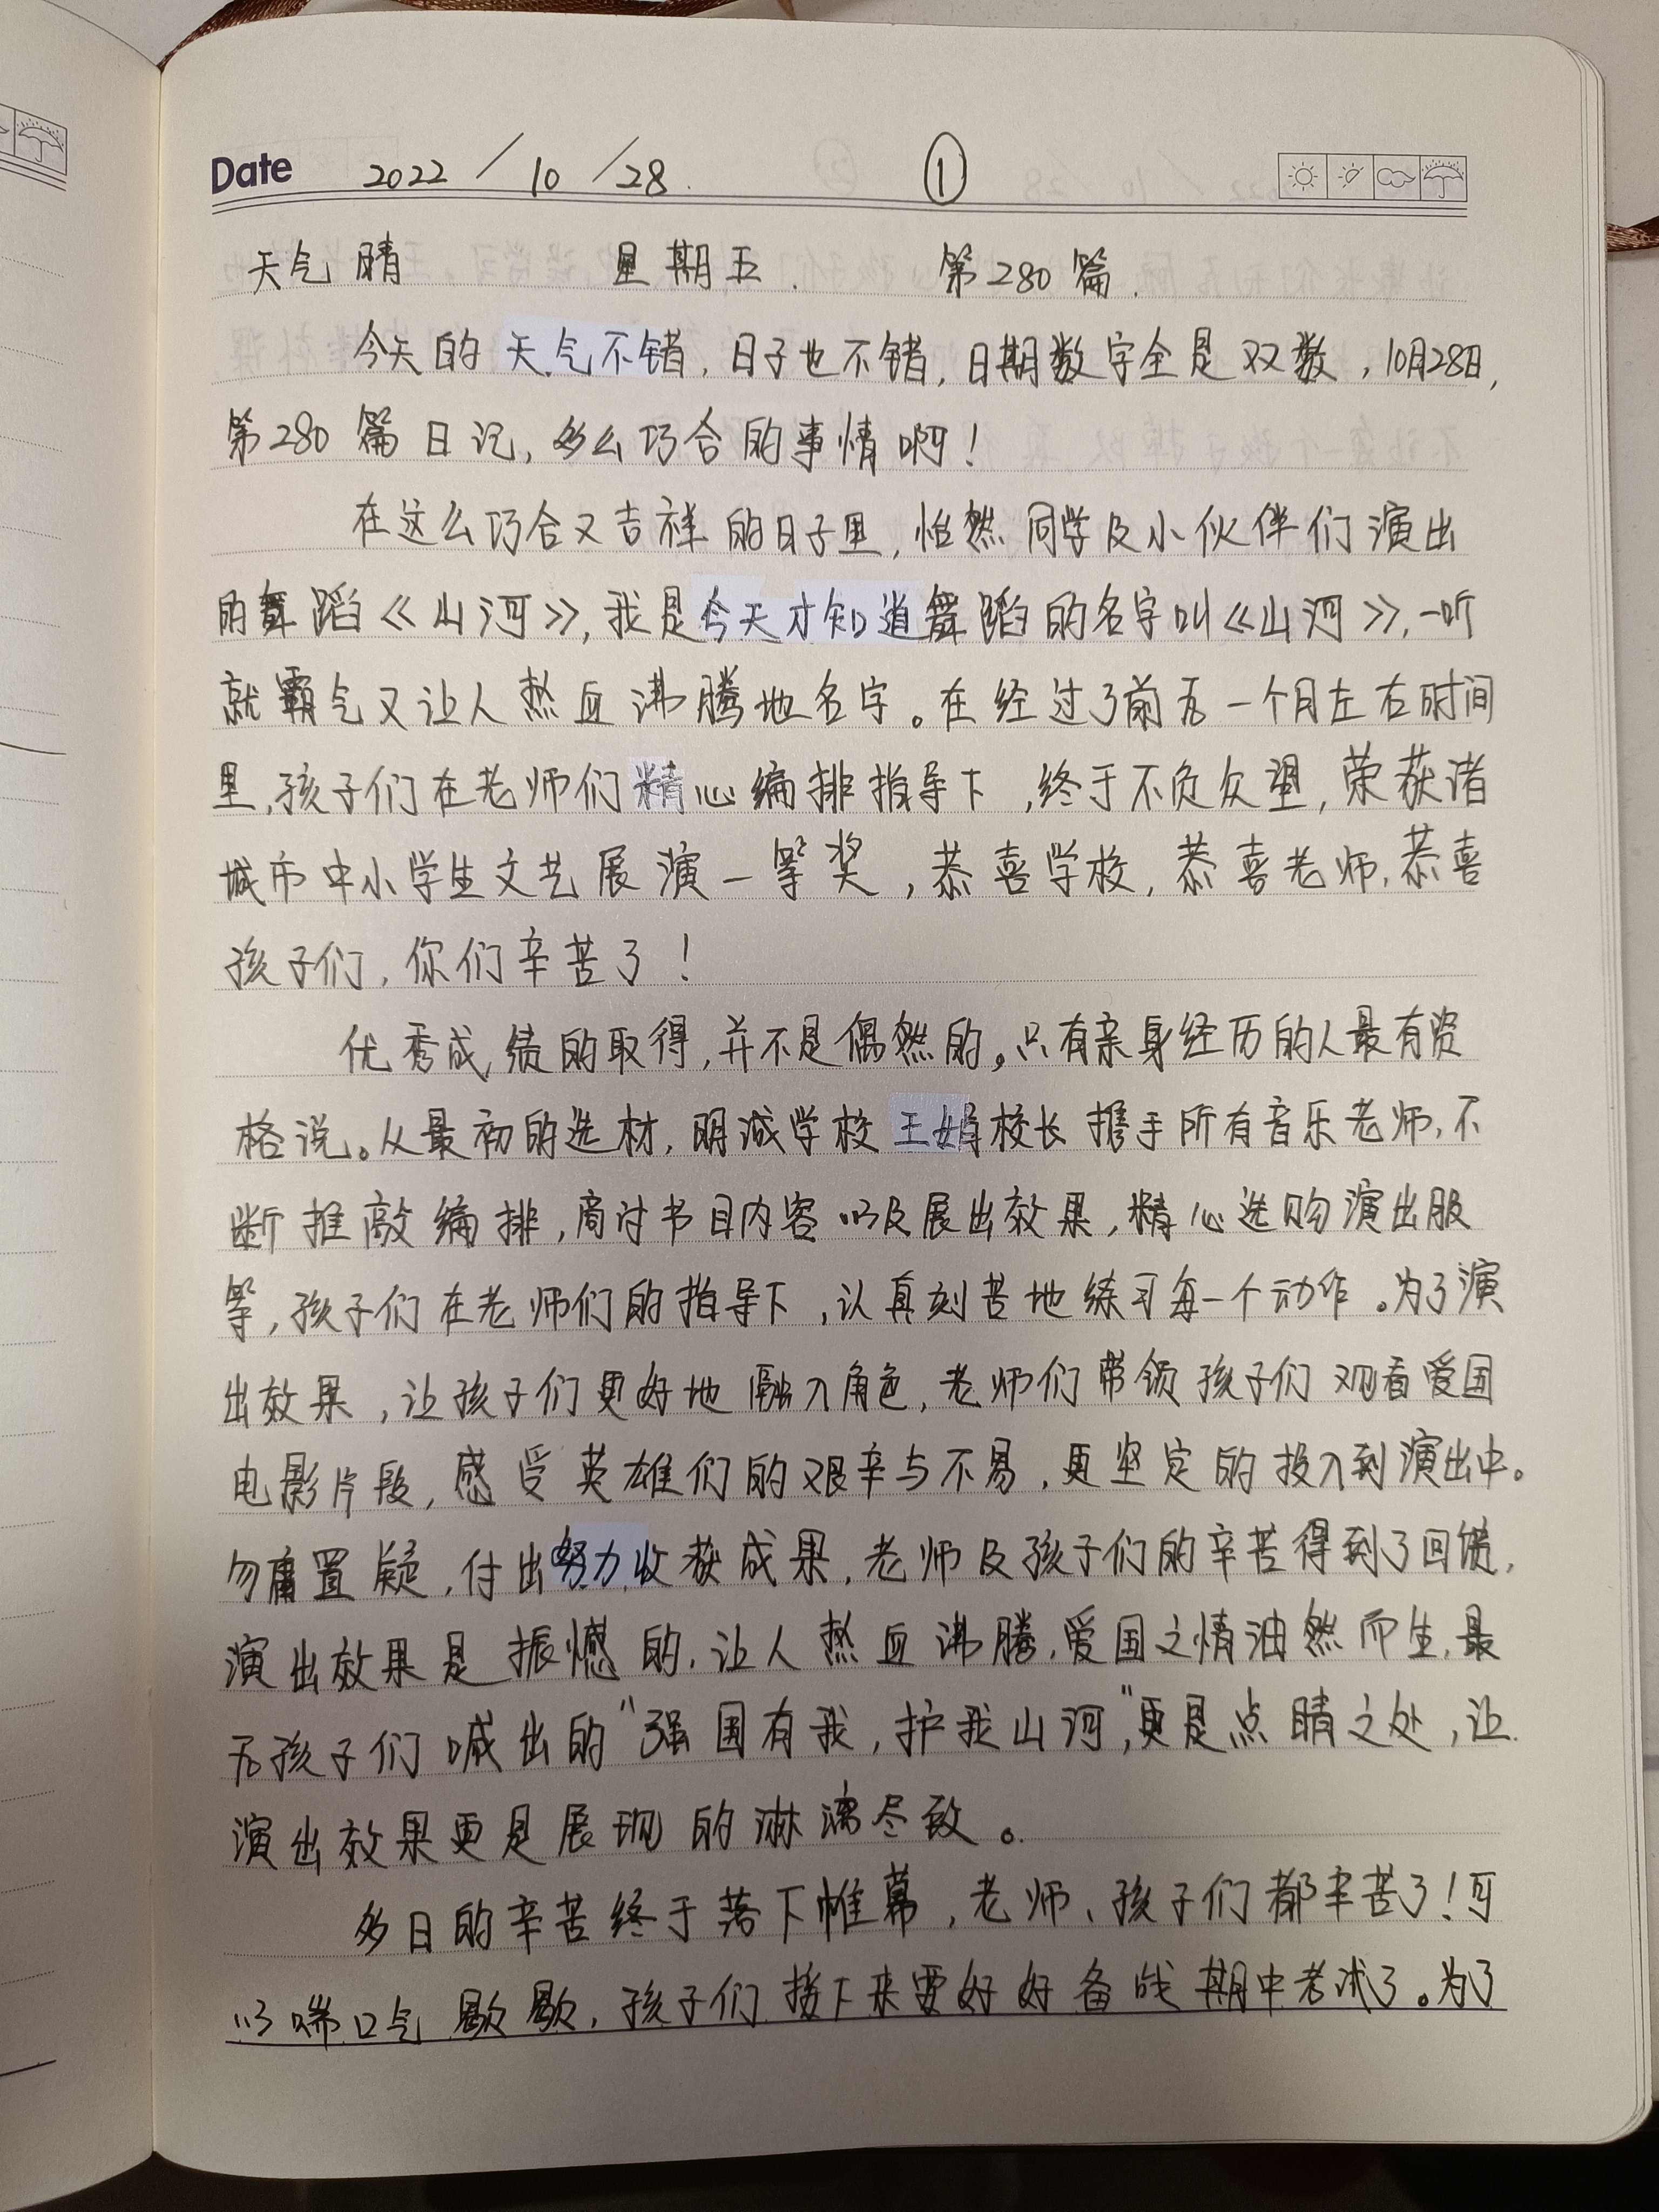 Date 2022 / 10 / 28. ①
天气晴 星期五. 第280篇.
今天的天气不错,日子也不错,日期数字全是双数,10月28日,
第280篇日记,多么巧合的事情啊!
在这么巧合又吉祥的日子里,怡然同学及小伙伴们演出
的舞蹈《山河》,我是今天才知道舞蹈的名字叫《山河》,一听
就霸气又让人热血沸腾地名字。在经过了前后一个月左右时间
里,孩子们在老师们精心编排指导下,终于不负众望,荣获诸
城市中小学生文艺展演一等奖,恭喜学校,恭喜老师,恭喜
孩子们,你们辛苦了!
优秀成绩的取得,并不是偶然的。只有亲身经历的人最有资
格说。从最初的选材,明诚学校王娟校长携手所有音乐老师,不
断推敲编排,商讨书目内容以及展出效果,精心选购演出服
等,孩子们在老师们的指导下,认真刻苦地练习每一个动作。为了演
出效果,让孩子们更好地融入角色,老师们带领孩子们观看爱国
电影片段,感受英雄们的艰辛与不易,更坚定的投入到演出中。
勿庸置疑,付出努力收获成果,老师及孩子们的辛苦得到了回馈,
演出效果是振憾的,让人热血沸腾,爱国之情油然而生,最
后孩子们喊出的“强国有我,护我山河”,更是点睛之处,让
演出效果更是展现的淋漓尽致。
多日的辛苦终于落下帷幕,老师、孩子们都辛苦了!可
以喘口气歇歇,孩子们接下来要好好备战期中考试了。为了